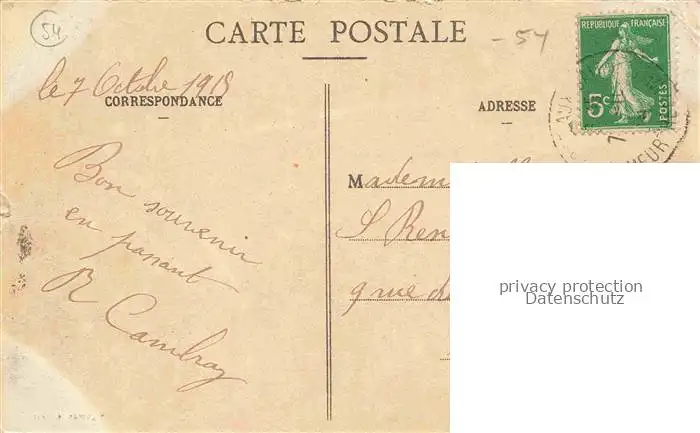 54
CARTE POSTALE
- 54
REPUBLIQUE FRANÇAISE
5c
POSTES
le 7 Octobre 1915
CORRESPONDANCE
ADRESSE
Bon souvenir
en passant
R Cambray
Madem
S Ren
9 rue de
privacy protection
Datenschutz